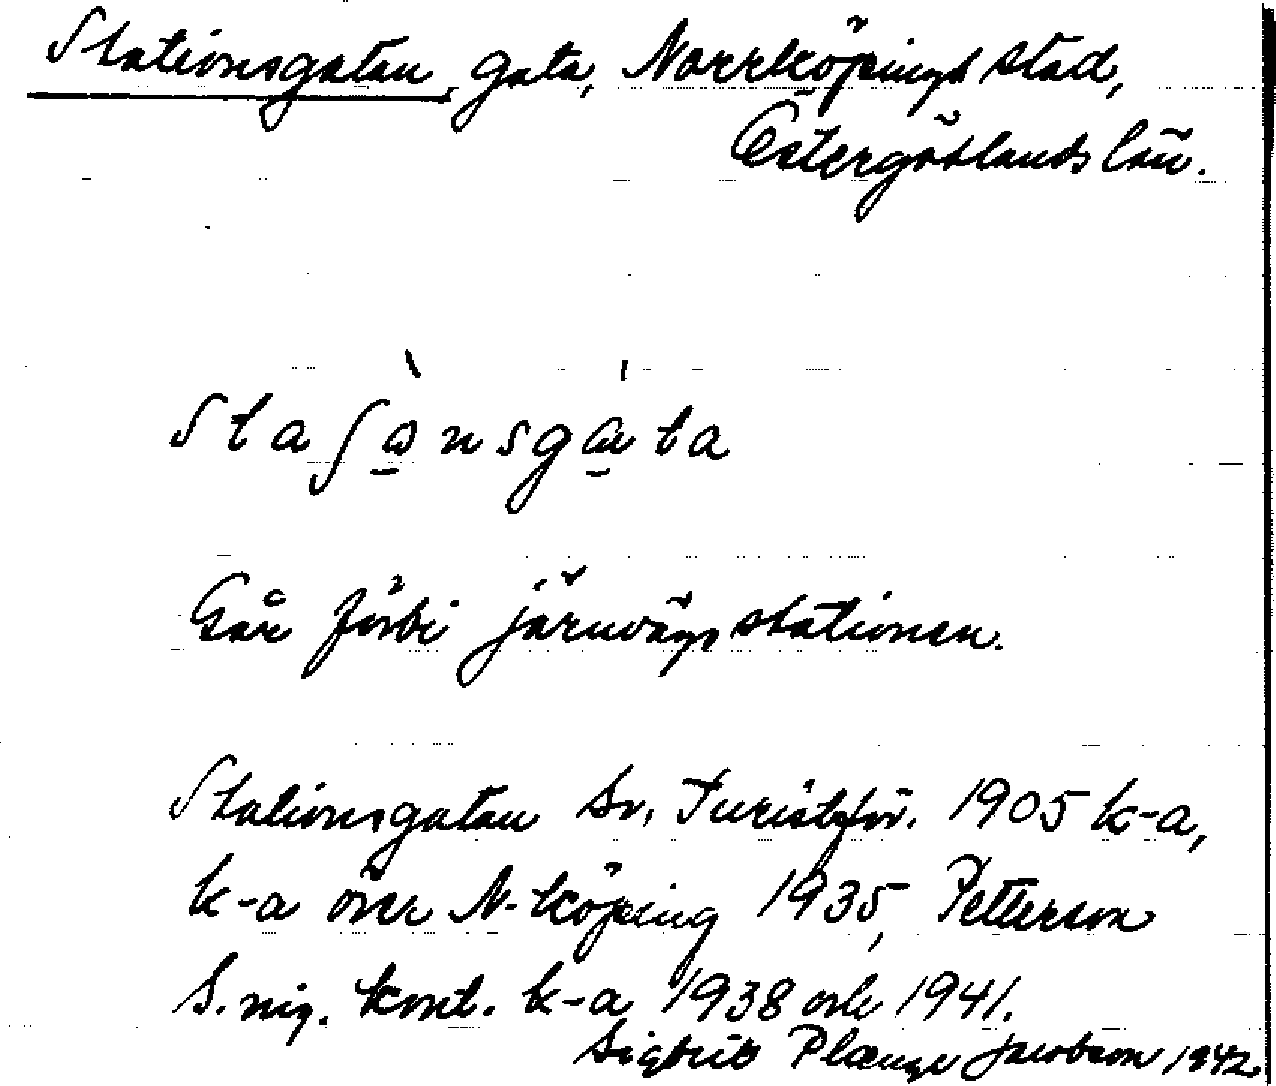 Stationsgatan, gata, Norrköpings stad,
Östergötlands län.
Staʃɷ̀nsgáta
Går förbi järnvägsstationen.
Stationsgatan Sv. Turistför. 1905 k-a,
k-a över N-köping 1935, Petterson
S. ing. kont. k-a 1938 och 1941.
Sigbrit Plænge Jacobson 1942.